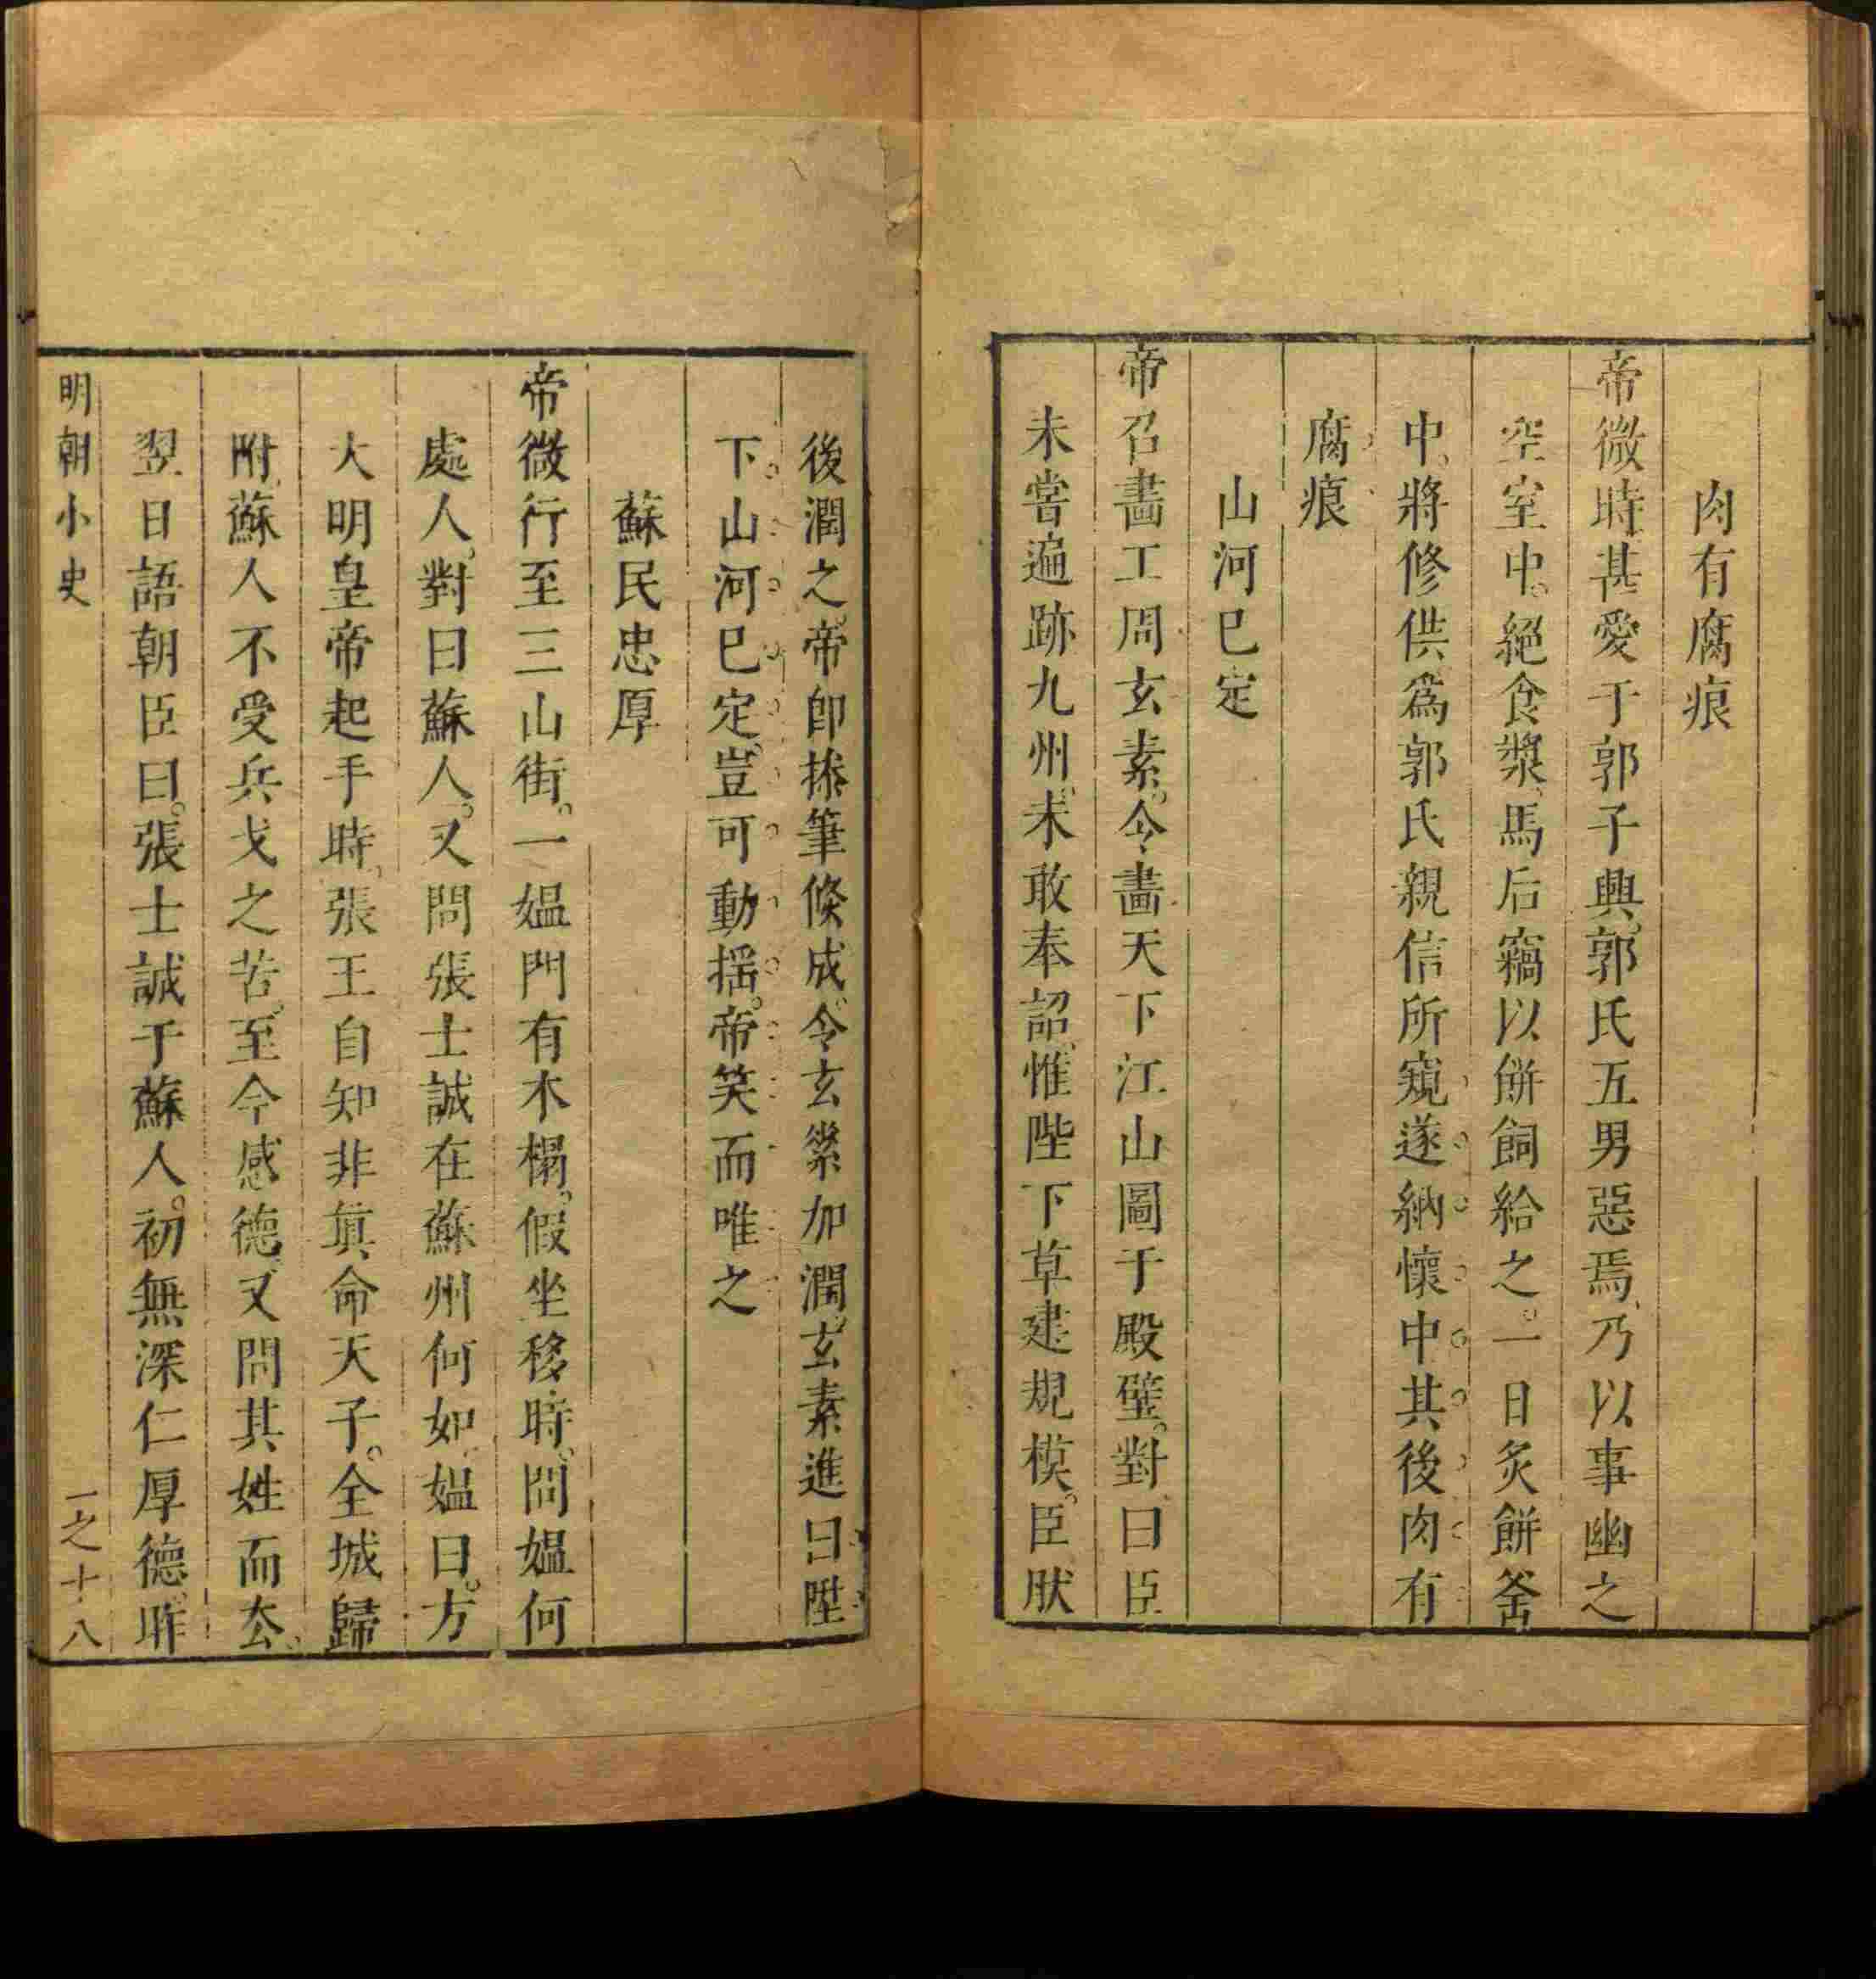 肉有腐痕
帝微時甚愛于郭子興。郭氏五男惡焉、乃以事幽之
空室中。絕食漿、馬后竊以餅飼給之。一日炙餅釜
中、將修供、爲郭氏親信所窺、遂納懷中、其後肉有
腐痕
山河已定
帝召畫工周玄素。令畫天下江山圖于殿壁。對曰臣
未嘗遍跡九州。未敢奉詔、惟陛下草建規模。臣肰
後潤之。帝卽捺筆倏成。令玄素加潤。玄素進曰陛
下山河已定。豈可動揺。帝笑而唯之
蘇民忠厚
帝微行至三山街。一媼門有木榻。假坐移時。問媼何
處人。對曰蘇人。又問張士誠在蘇州何如、媼曰。方
大明皇帝起手時、張王自知非眞命天子。全城歸
附、蘇人不受兵戈之苦。至今感德、又問其姓而厺。
翌日語朝臣曰。張士誠于蘇人。初無深仁厚德、昨
明朝小史
一之十八